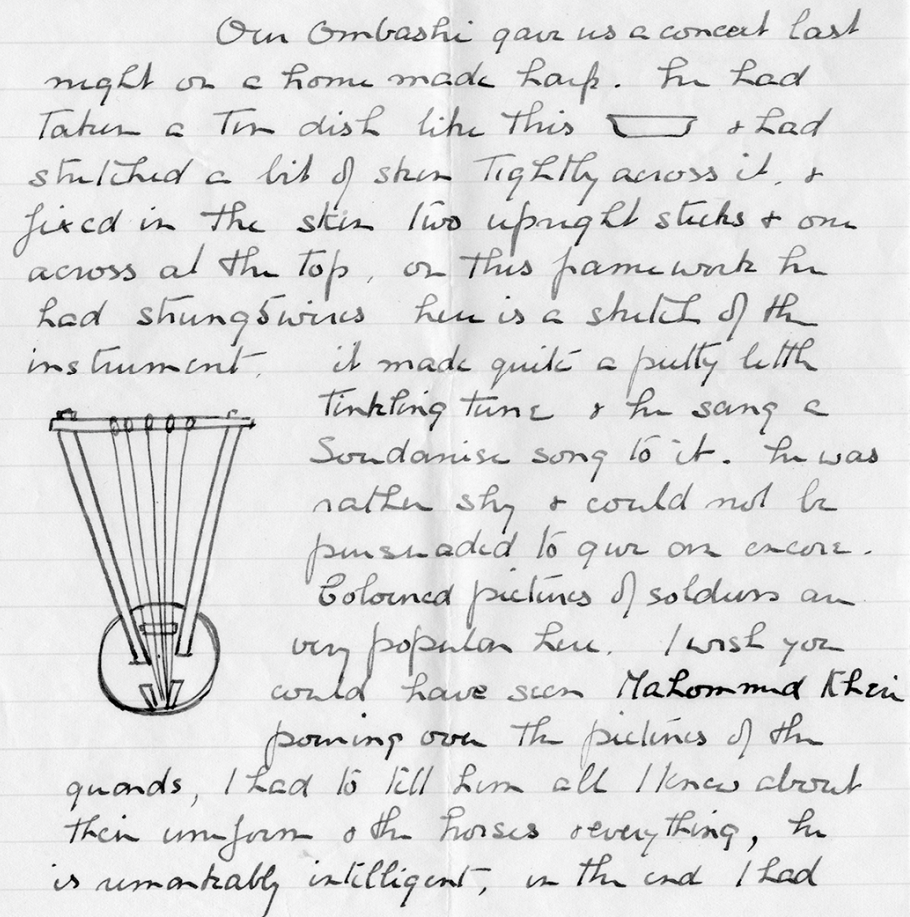 Our Ombashi gave us a concert last
night on a home made harp. he had
Taken a Tin dish like this & had
stretched a bit of skin Tightly across it, &
fixed in the skin two upright sticks & one
across at the top, on this framework he
had strung 5 wires here is a sketch of the
instrument. it made quite a pretty little
tinkling tune & he sang a
Soudanise song to it. he was
rather shy & could not be
pursuaded to give an encore.
Coloured pictures of soldiers are
very popular here. I wish you
could have seen Mahommed Kheir
poring over the pictures of the
guards, I had to tell him all I knew about
their uniform & the horses & everything, he
is remarkably intelligent, in the end I had